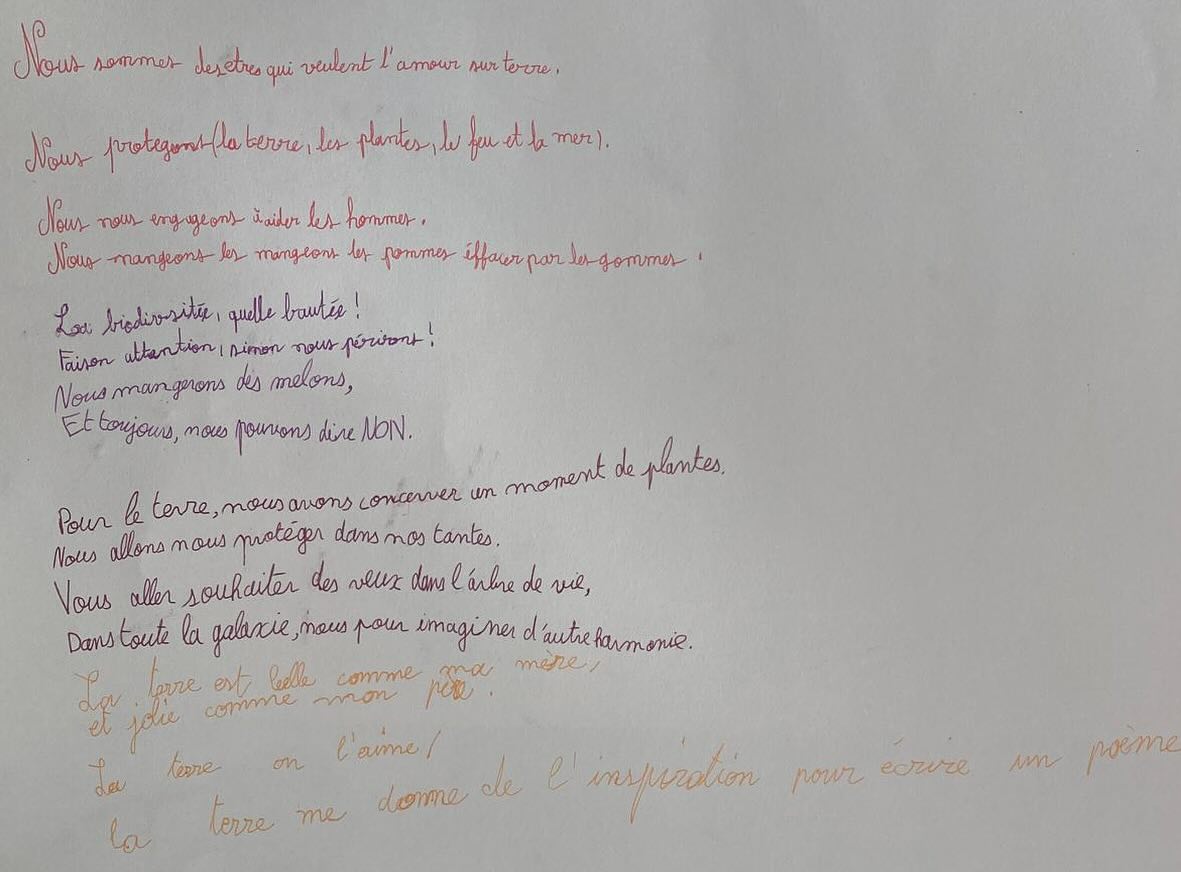 Nous sommes des êtres qui veulent l'amour sur terre.
Nous protegons (la terre, les plantes, le feu et la mer).
Nous nous engageons à aider les hommes.
Nous mangeons les mangeons les pommes éffacer par les gommes.
La biodiversitée, quelle bautée !
Faison attention, sinon nous périront !
Nous mangerons des melons,
Et toujours, nous pouvons dire NON.
Pour le terre, nous avons concerver un moment de plantes.
Nous allons nous protéger dans nos tantes.
Vous aller souhaiter des veux dans l'árbre de vie,
Dans toute la galaxie, nous pour imaginer d'autre harmonie.
La terre est belle comme ma mère,
et jolie comme mon père.
La terre on l'aime,
la terre me donne de l'inspiration pour écrire un poème